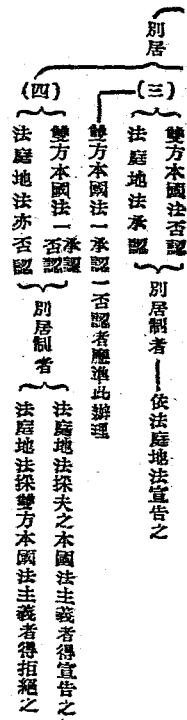 別居
(三)
雙方本國法否認
法庭地法承認
別居制者——依法庭地法宣告之
雙方本國法一承認一否認者應準此辦理
(四)
雙方本國法一承認一否認
法庭地法亦否認
別居制者
法庭地法採夫之本國法主義者得宣告之
法庭地法採雙方本國法主義者得拒絕之